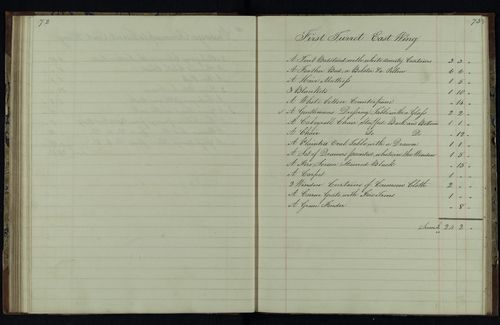 72
73
First Turret East Wing
A Tent Bedstead with white dimity Curtains 3 3 -
A Feather Bed, a Bolster & a Pillow 6 6 -
A Hair Mattress 1 5 -
3 Blankets 1 10 -
A White Cotton Counterpane - 15 -
A Gentlemans Dressing Table with a Glass 2 2 -
A Chair Stuffed Back and Bottom 1 1 -
A Chair Do Do - 12 -
A Oval Table with a Drawer 1 1 -
A Set of Drawers painted white in the Window 1 5 -
A Fire Screen Stained Black - 15 -
A Carpet 1 - -
2 Window Curtains of Common Cloth 2 - -
A Grate with Fire Irons 1 - -
A Green Fender - 8 -
24 3 -